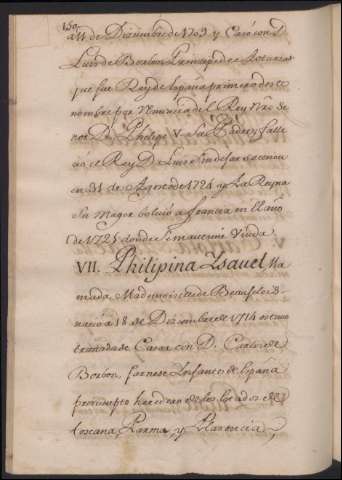 150
a 11 de Diziembre de 1709 y Casó con D.
Luis de Borbon Principe de Asturias
que fue Rey de España primero deste
nombre por Renuncia del Rey Nro Se
ñor Dn Phelipe V su Padre y falle
cio el Rey D. Luis sin dejar sucecion
en 31 de Agosto de 1724 y la Reyna
su Muger bolvió a francia en el año
de 1725 donde se mantiene Viuda
VII. Philipina Isavel lla
mada Mademoiselle de Beaujolois
nacio a 18 de Diziembre de 1714 estuvo
tratada de Casar con D. Carlos de
Borbon, farnese Infante de España
presumpto heredero de los estados de
toscana, Parma, y Placencia,